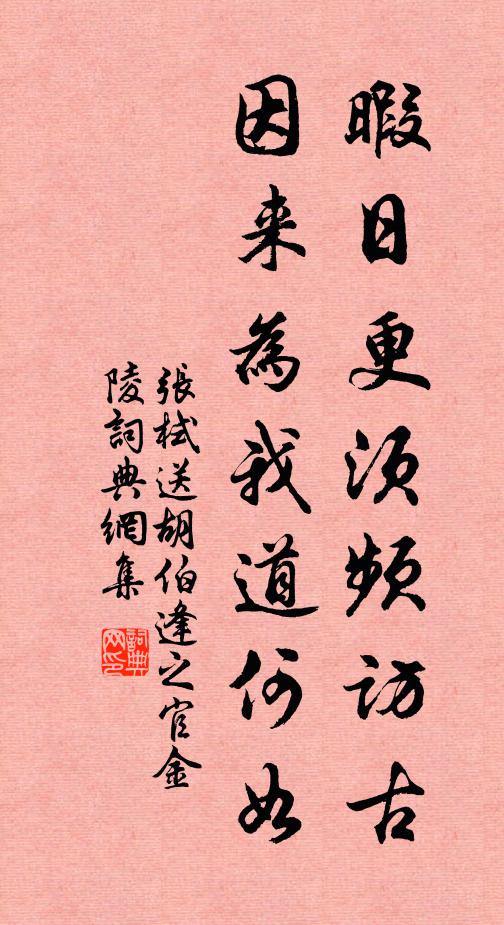 暇日更須頻訪古
因来為我道何如
張栻送胡伯逢之官金
陵詞典網集
詞典網印